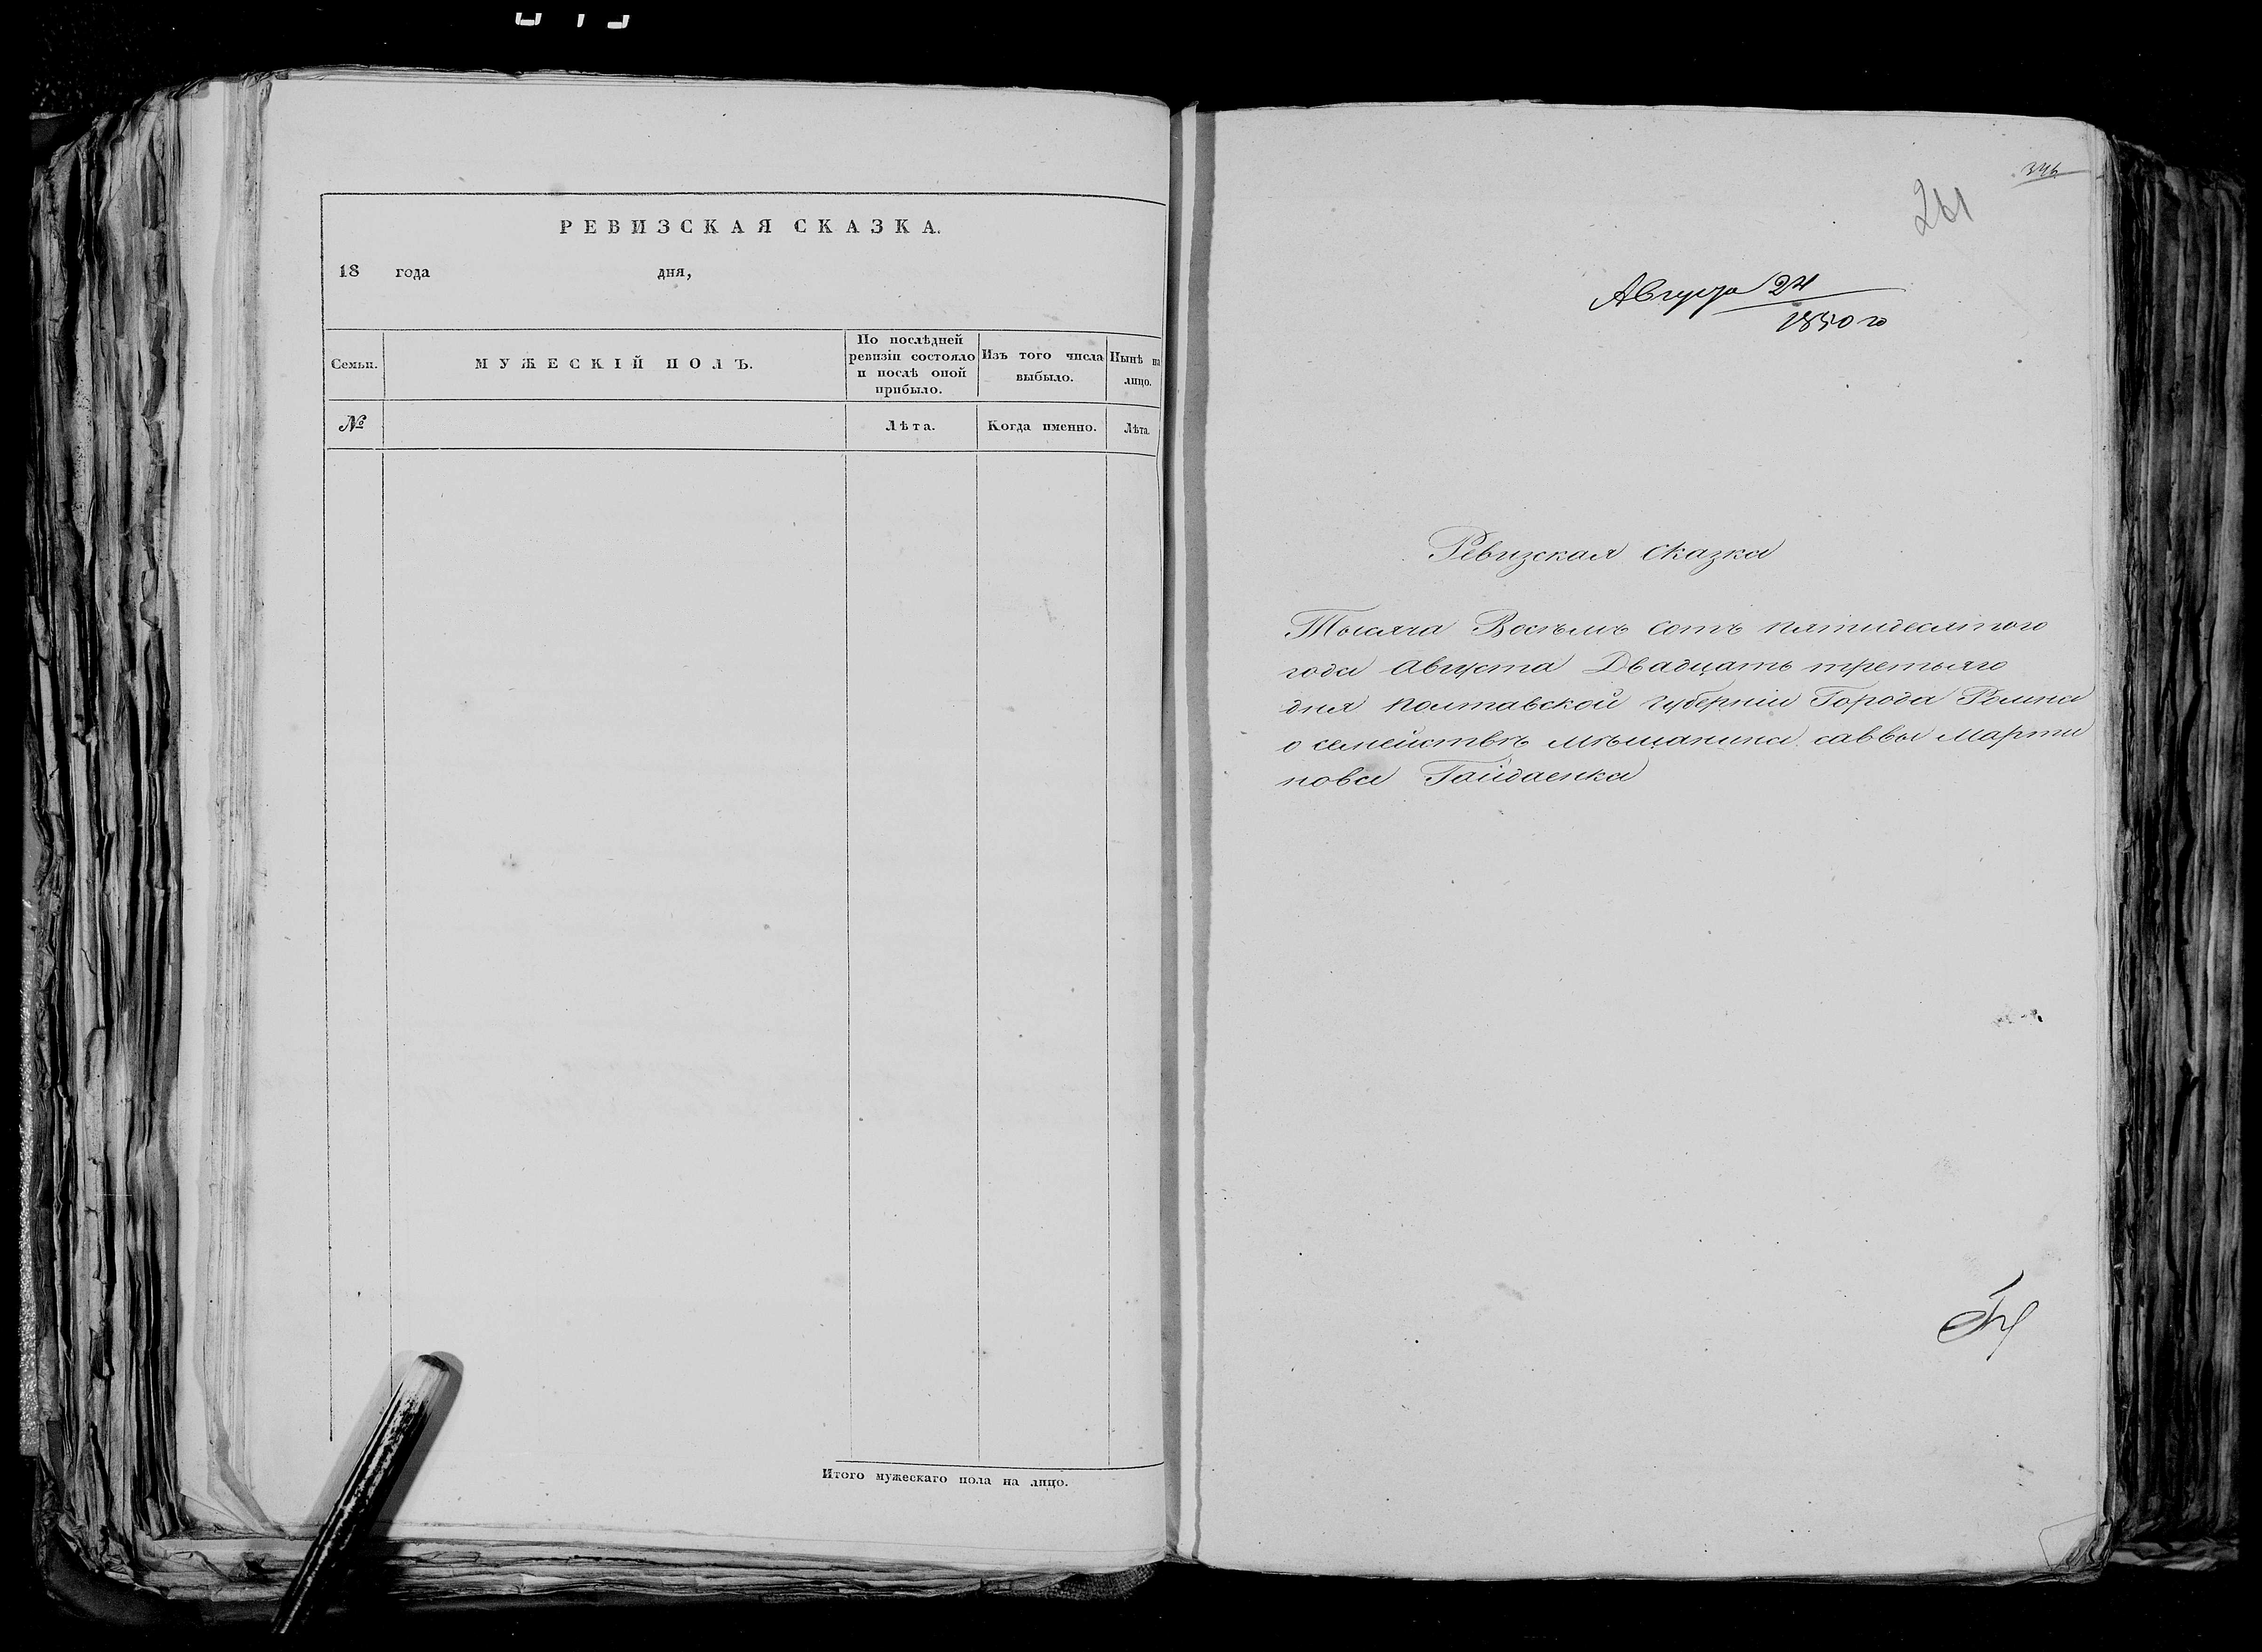 РЕВИЗСКАЯ СКАЗКА.
18 года дня,
Семьи.
МУЖЕСКІЙ ПОЛЪ.
По послѣдней
ревизіи состояло
и послѣ оной
прибыло.
Изъ того числа
выбыло.
Нынѣ на
лицо.
№
Лѣта.
Когда именно.
Лѣта.
Итого мужескаго пола на лицо.
346
261
Августа 24
1850 го
Ревизская сказка
Тысяча Восѣмъ сотъ пятидесятого
года Августа Двадцать третьяго
дня Полтавской Губерніи Города Ромна
о семействѣ мѣщанина саввы Марти
нова Гайдаенка